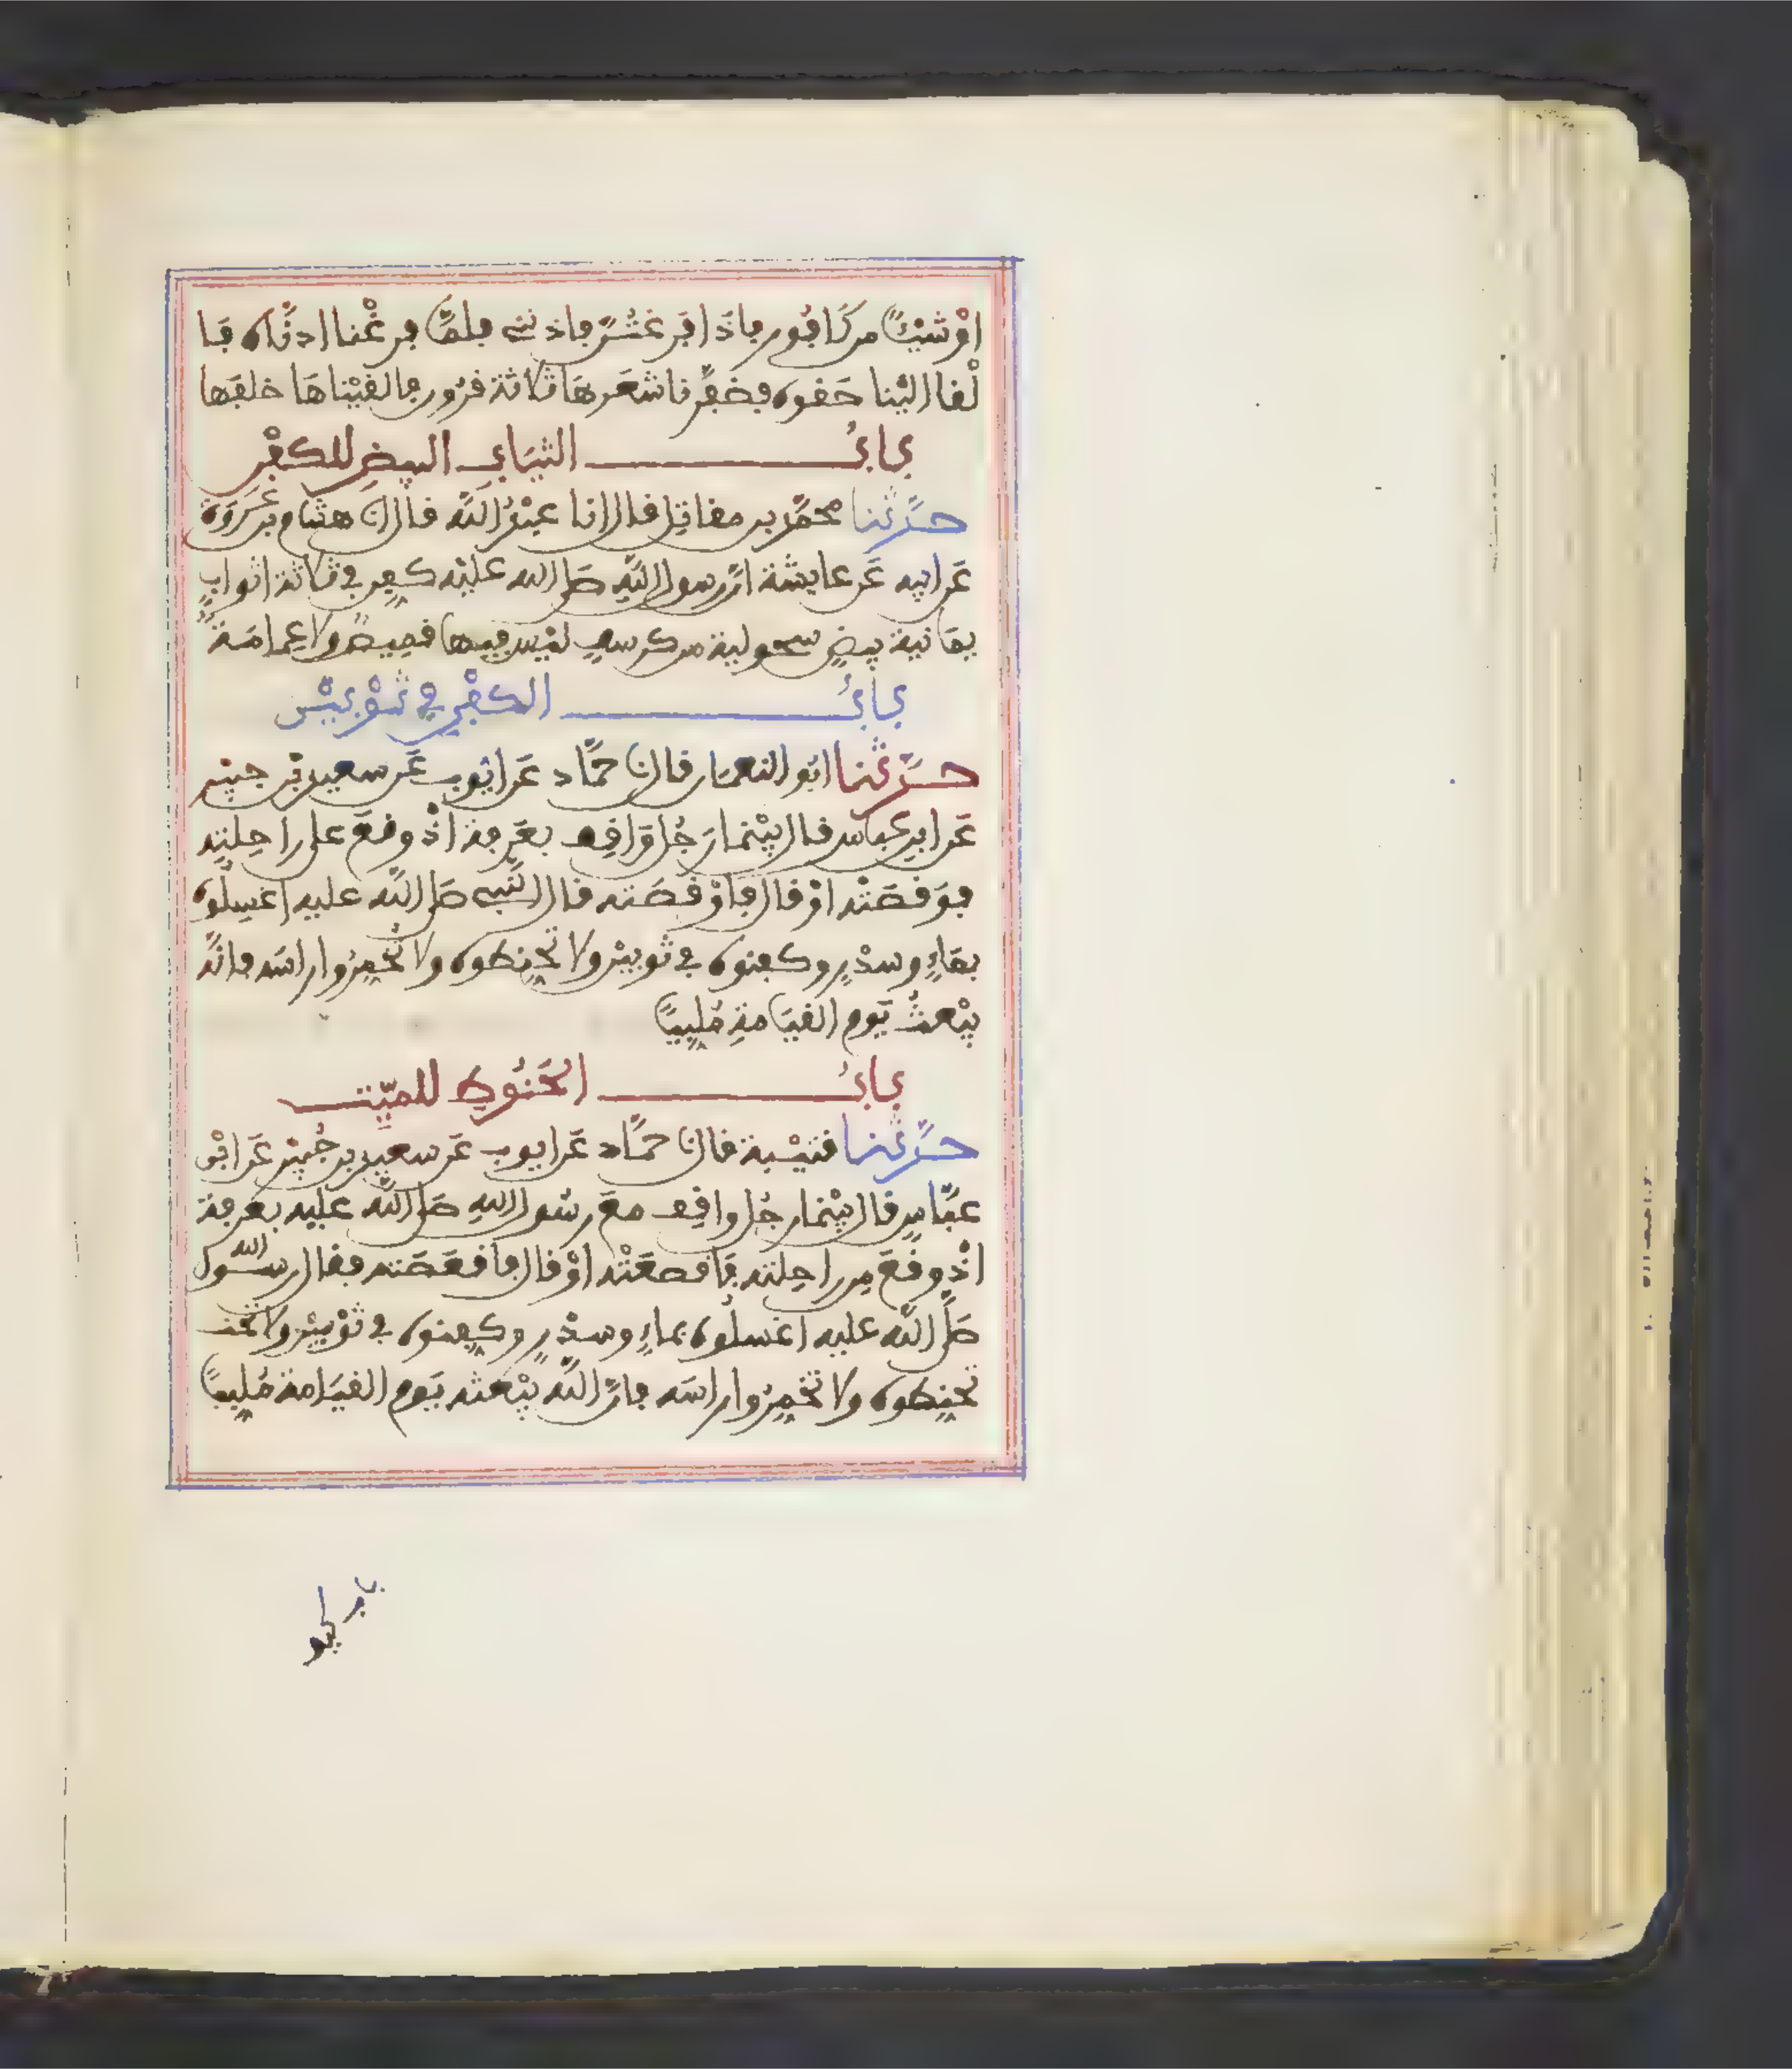 اوْ شيْئًا من كَافُور فاذَا فَرغتُنّ فاذننى فلمّا فرغْنا اذنّاه فَا
لْقا اليْنا حَقوه فضفّرنا شعَرهَا ثلاثة قرُون فالقيْناهَا خلفَها
بابُ الثيَابِ البيضِ للكفْن
حدّثنا محمّد بن مقاتِل قال انا عبْدُ اللّه قال انا هشام بن عُروَة
عَن ابيه عَن عايشة انّ رسول اللّهِ صلى الله عليْه كفِن فى ثلاثة اثوابٍ
يمَانية بيضٍ سحولية من كرسفٍ ليْس فيها قميصٌ ولا عِمامَةٌ
بابُ الكفْنِ فى ثوْبيْن
حدّثنا ابُو النعمَان قال نا حمّاد عَن ايُّوب عَن سعيد بْن جبيْر
عَن ابن عباس قال بيْنما رَجُل وَاقِف بعَرفة اذْ وقعَ على راحِلتِه
فوَقصَتْه اوْ قال فاوْقصَته قال النّبى صلى اللّه عليه اغسِلُوه
بمَاءٍ وسدْرٍ وكفنوه فى ثوبيْن ولا تُحنِطوه ولا تُخمِرُوا راسَه فانّه
يبْعثُ يَوم القيَامةِ مُلبيًا
بابُ الحَنُوطِ للميّت
حدّثنا قتيْبة قال نا حمّاد عَن ايوب عَن سعيد بن جُبيْر عَن ابْن
عبّاسٍ قال بيْنما رجُل واقِف معَ رسُول اللهِ صلى اللّه عليه بعَرفة
اذْ وقعَ مِن راحِلتِه فَاقصعَتْه اوْ قال فاقعَصَته فقال رسُول الله
صلّى اللّه عليه اغسلُوه بماءٍ وسدْرٍ وكفِنوه فى ثوْبيْن ولا تحنـ
تحنِطوه ولا تُخمِرُوا راسَه فانّ اللّه يبْعثه يَوم القيَامة مُلبيًا